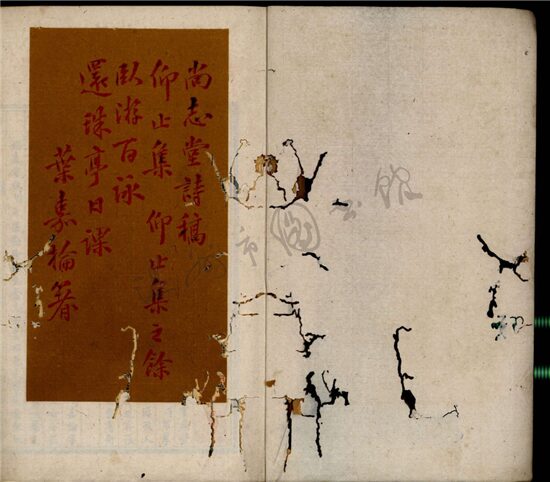 尚志堂詩稿
仰止集 仰止集之餘
臥游百詠
還珠亭日課
葉嘉掄著